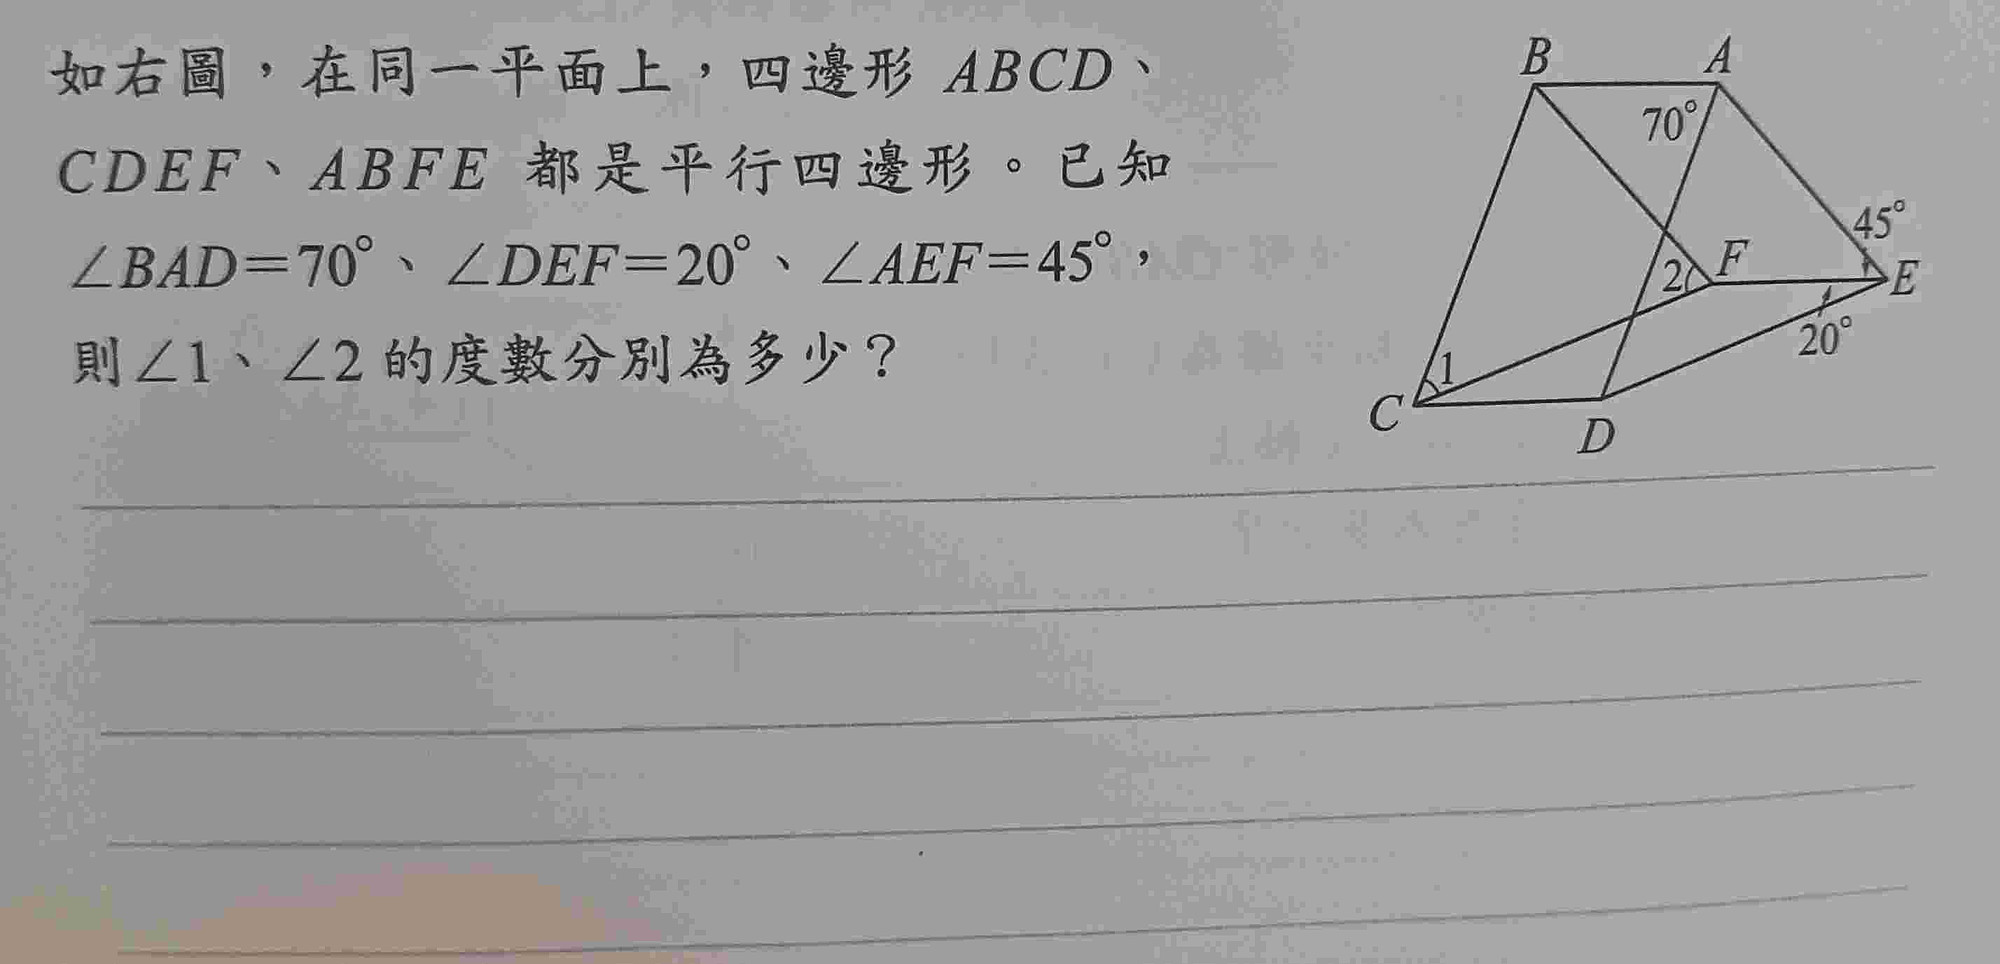 如右圖，在同一平面上，四邊形 ABCD、
CDEF、ABFE 都是平行四邊形。已知
∠BAD＝70°、∠DEF＝20°、∠AEF＝45°，
則∠1、∠2 的度數分別為多少？
B A
70°
45°
2 F E
20°
1
C D